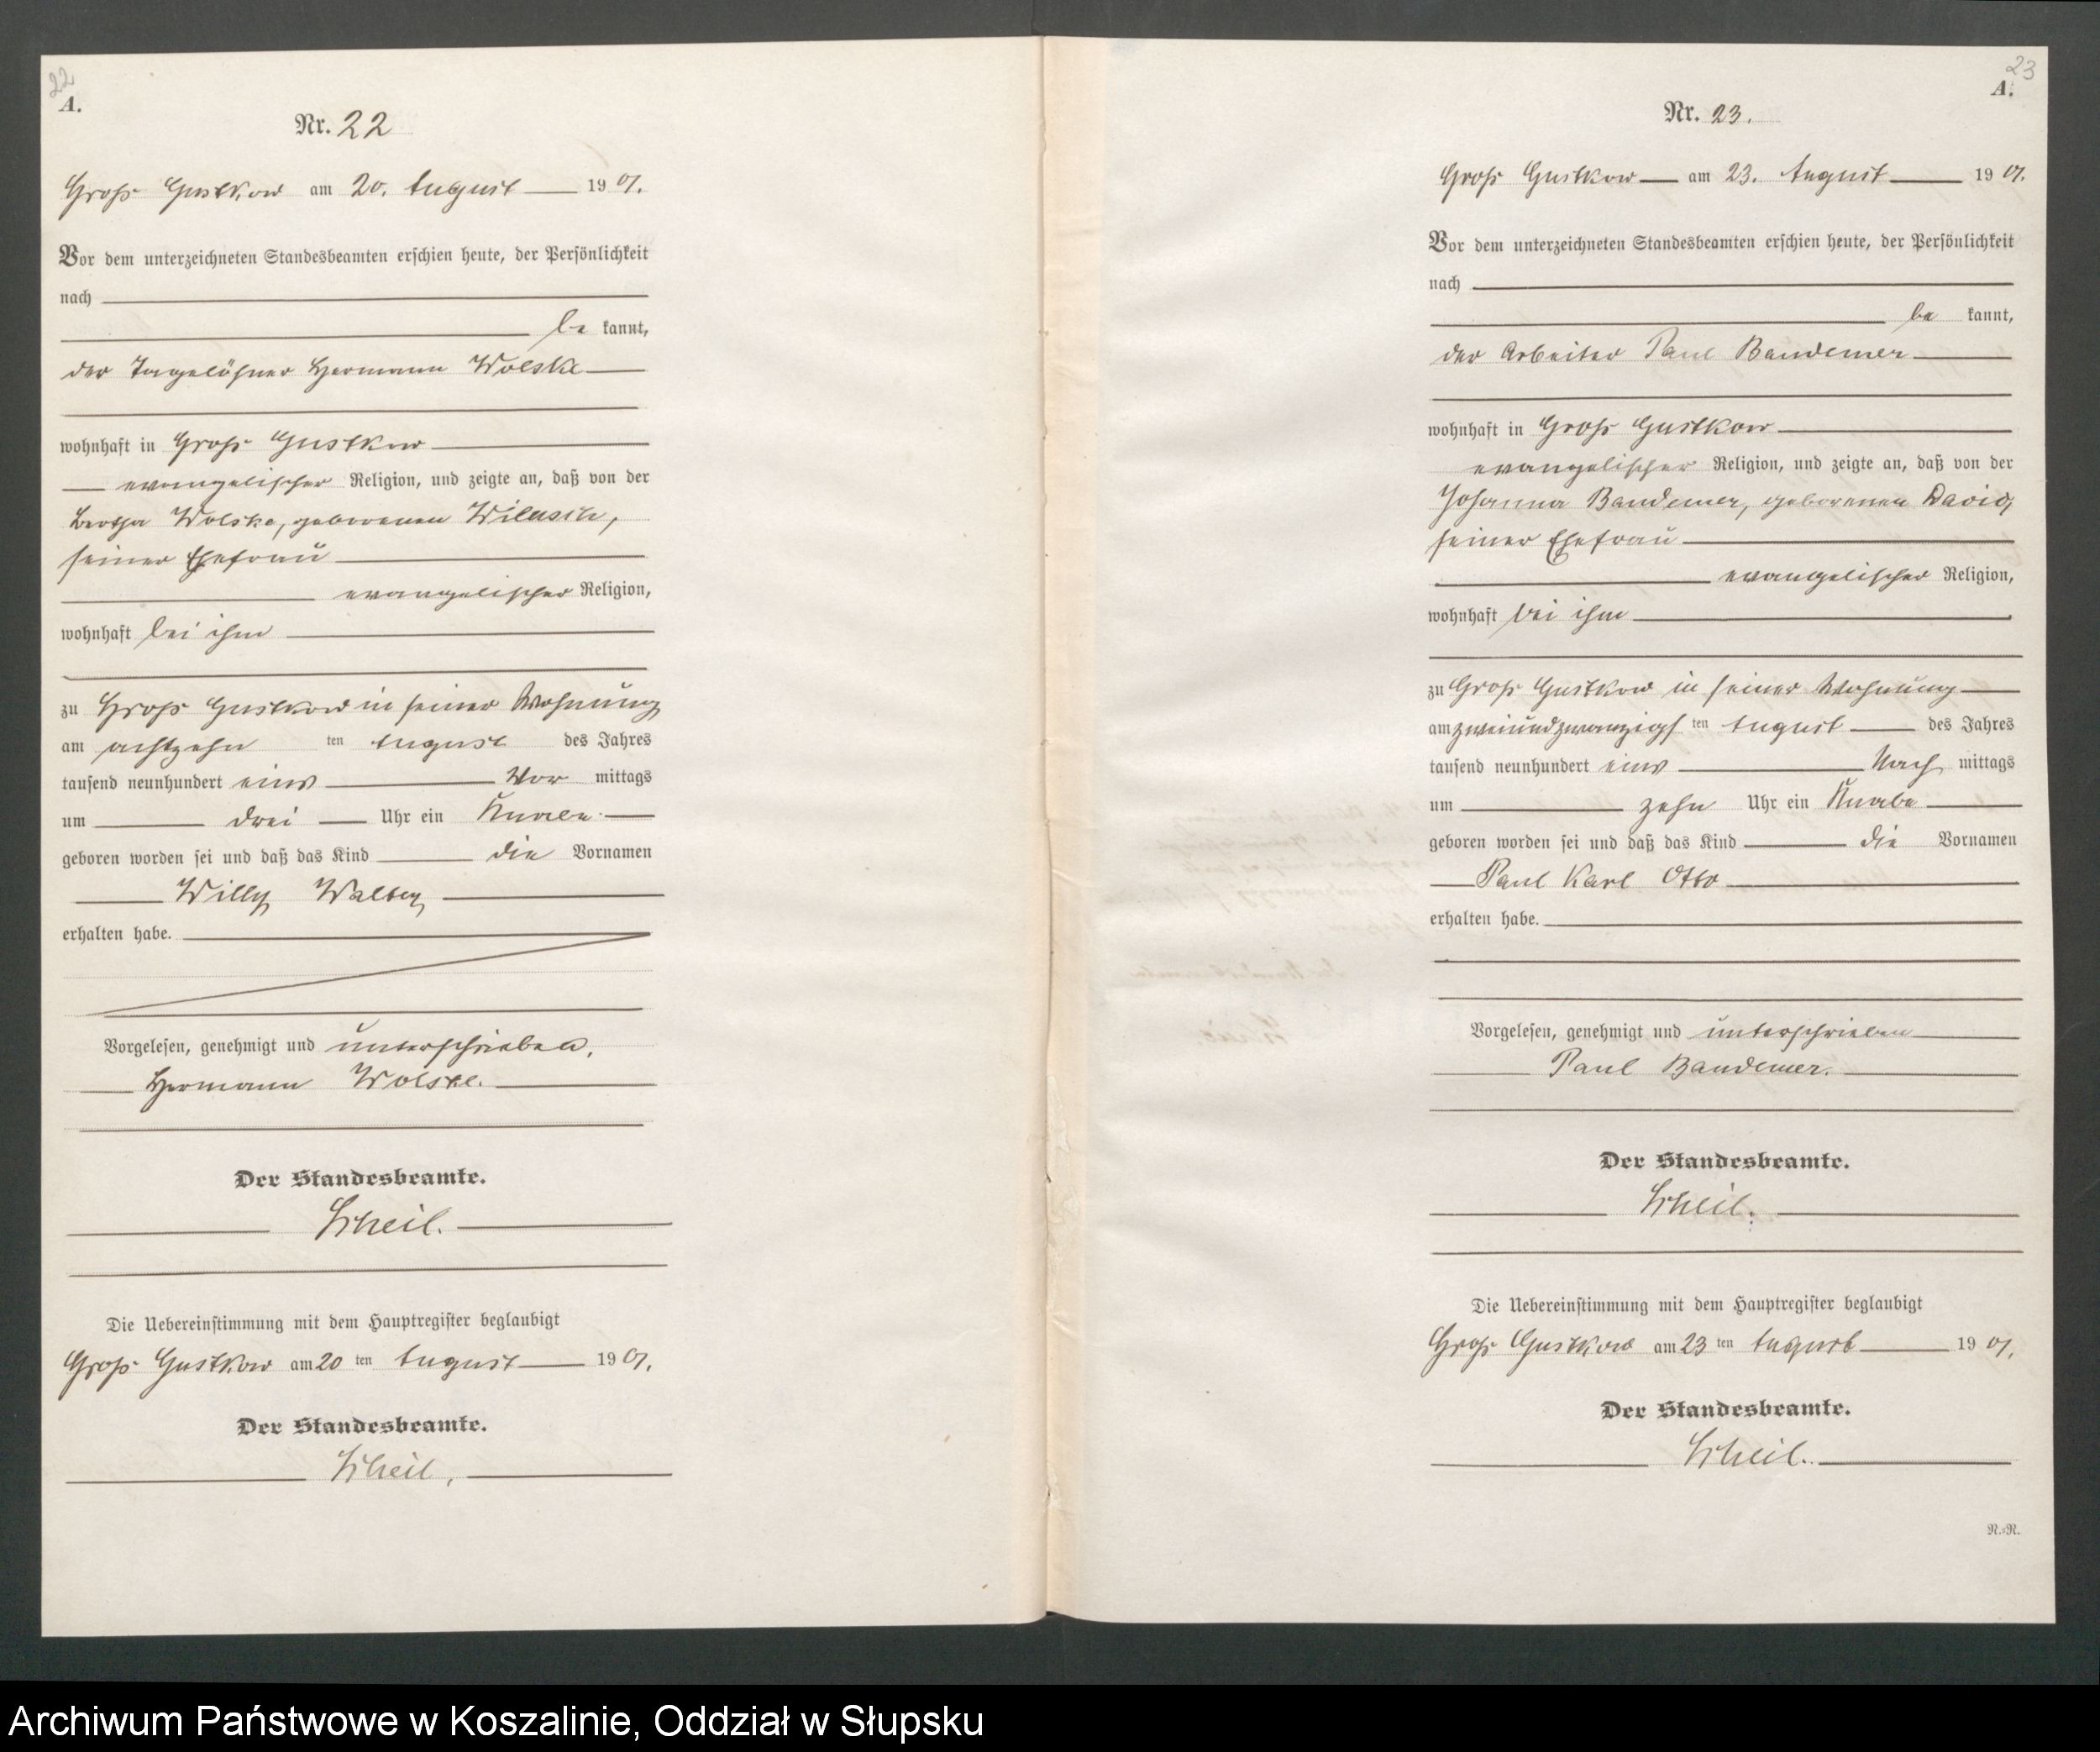 22
A.
Nr. 22
Groß Gustkow am 20. August 19 01.
Vor dem unterzeichneten Standesbeamten erschien heute, der Persönlichkeit
nach
be kannt,
der Tagelöhner Hermann Wolske
wohnhaft in Groß Gustkow
evangelischer Religion, und zeigte an, daß von der
Bertha Wolske, geborenen
seiner Ehefrau
evangelischer Religion,
wohnhaft bei ihm
zu Groß Gustkow in seiner Wohnung
am achtzehn ten August des Jahres
tausend neunhundert eins Vor mittags
um drei Uhr ein Knabe
geboren worden sei und daß das Kind die Vornamen
Willy Walter
erhalten habe.
Vorgelesen, genehmigt und unterschrieben.
Hermann Wolske.
Der Standesbeamte.
Scheil.
Die Uebereinstimmung mit dem Hauptregister beglaubigt
Groß Gustkow am 20 ten August 19 01.
Der Standesbeamte.
Scheil.
23
A.
Nr. 23.
Groß Gustkow am 23. August 19 01.
Vor dem unterzeichneten Standesbeamten erschien heute, der Persönlichkeit
nach
be kannt,
der Arbeiter Paul Bandemer
wohnhaft in Groß Gustkow
evangelischer Religion, und zeigte an, daß von der
Johanna Bandemer, geborenen David,
seiner Ehefrau
evangelischer Religion,
wohnhaft bei ihm
zu Groß Gustkow in seiner Wohnung
am zweiundzwanzigs ten August des Jahres
tausend neunhundert eins Nach mittags
um zehn Uhr ein Knabe
geboren worden sei und daß das Kind die Vornamen
Paul Karl Otto
erhalten habe.
Vorgelesen, genehmigt und unterschrieben
Paul Bandemer.
Der Standesbeamte.
Scheil.
Die Uebereinstimmung mit dem Hauptregister beglaubigt
Groß Gustkow am 23 ten August 19 01.
Der Standesbeamte.
Scheil.
N.=N.
Archiwum Państwowe w Koszalinie, Oddział w Słupsku